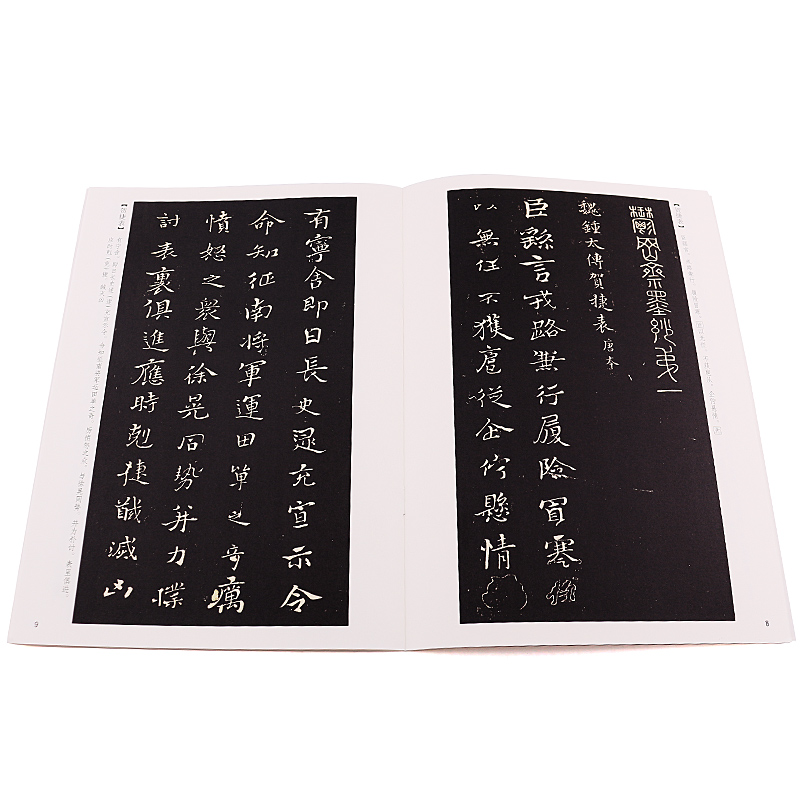 【贺捷表】
鬱岡齋墨妙弟一
魏鍾太傅賀捷表 唐摹
臣繇言戎路兼行履險冒寒臣
以無任不獲扈從企佇懸情
8
有寧舍即日長史逯充宣示令
命知征南將軍運田單之奇厲
憤怒之衆與徐晃同勢并力撲
討表裏俱進應時剋捷馘滅凶
【贺捷表】
9